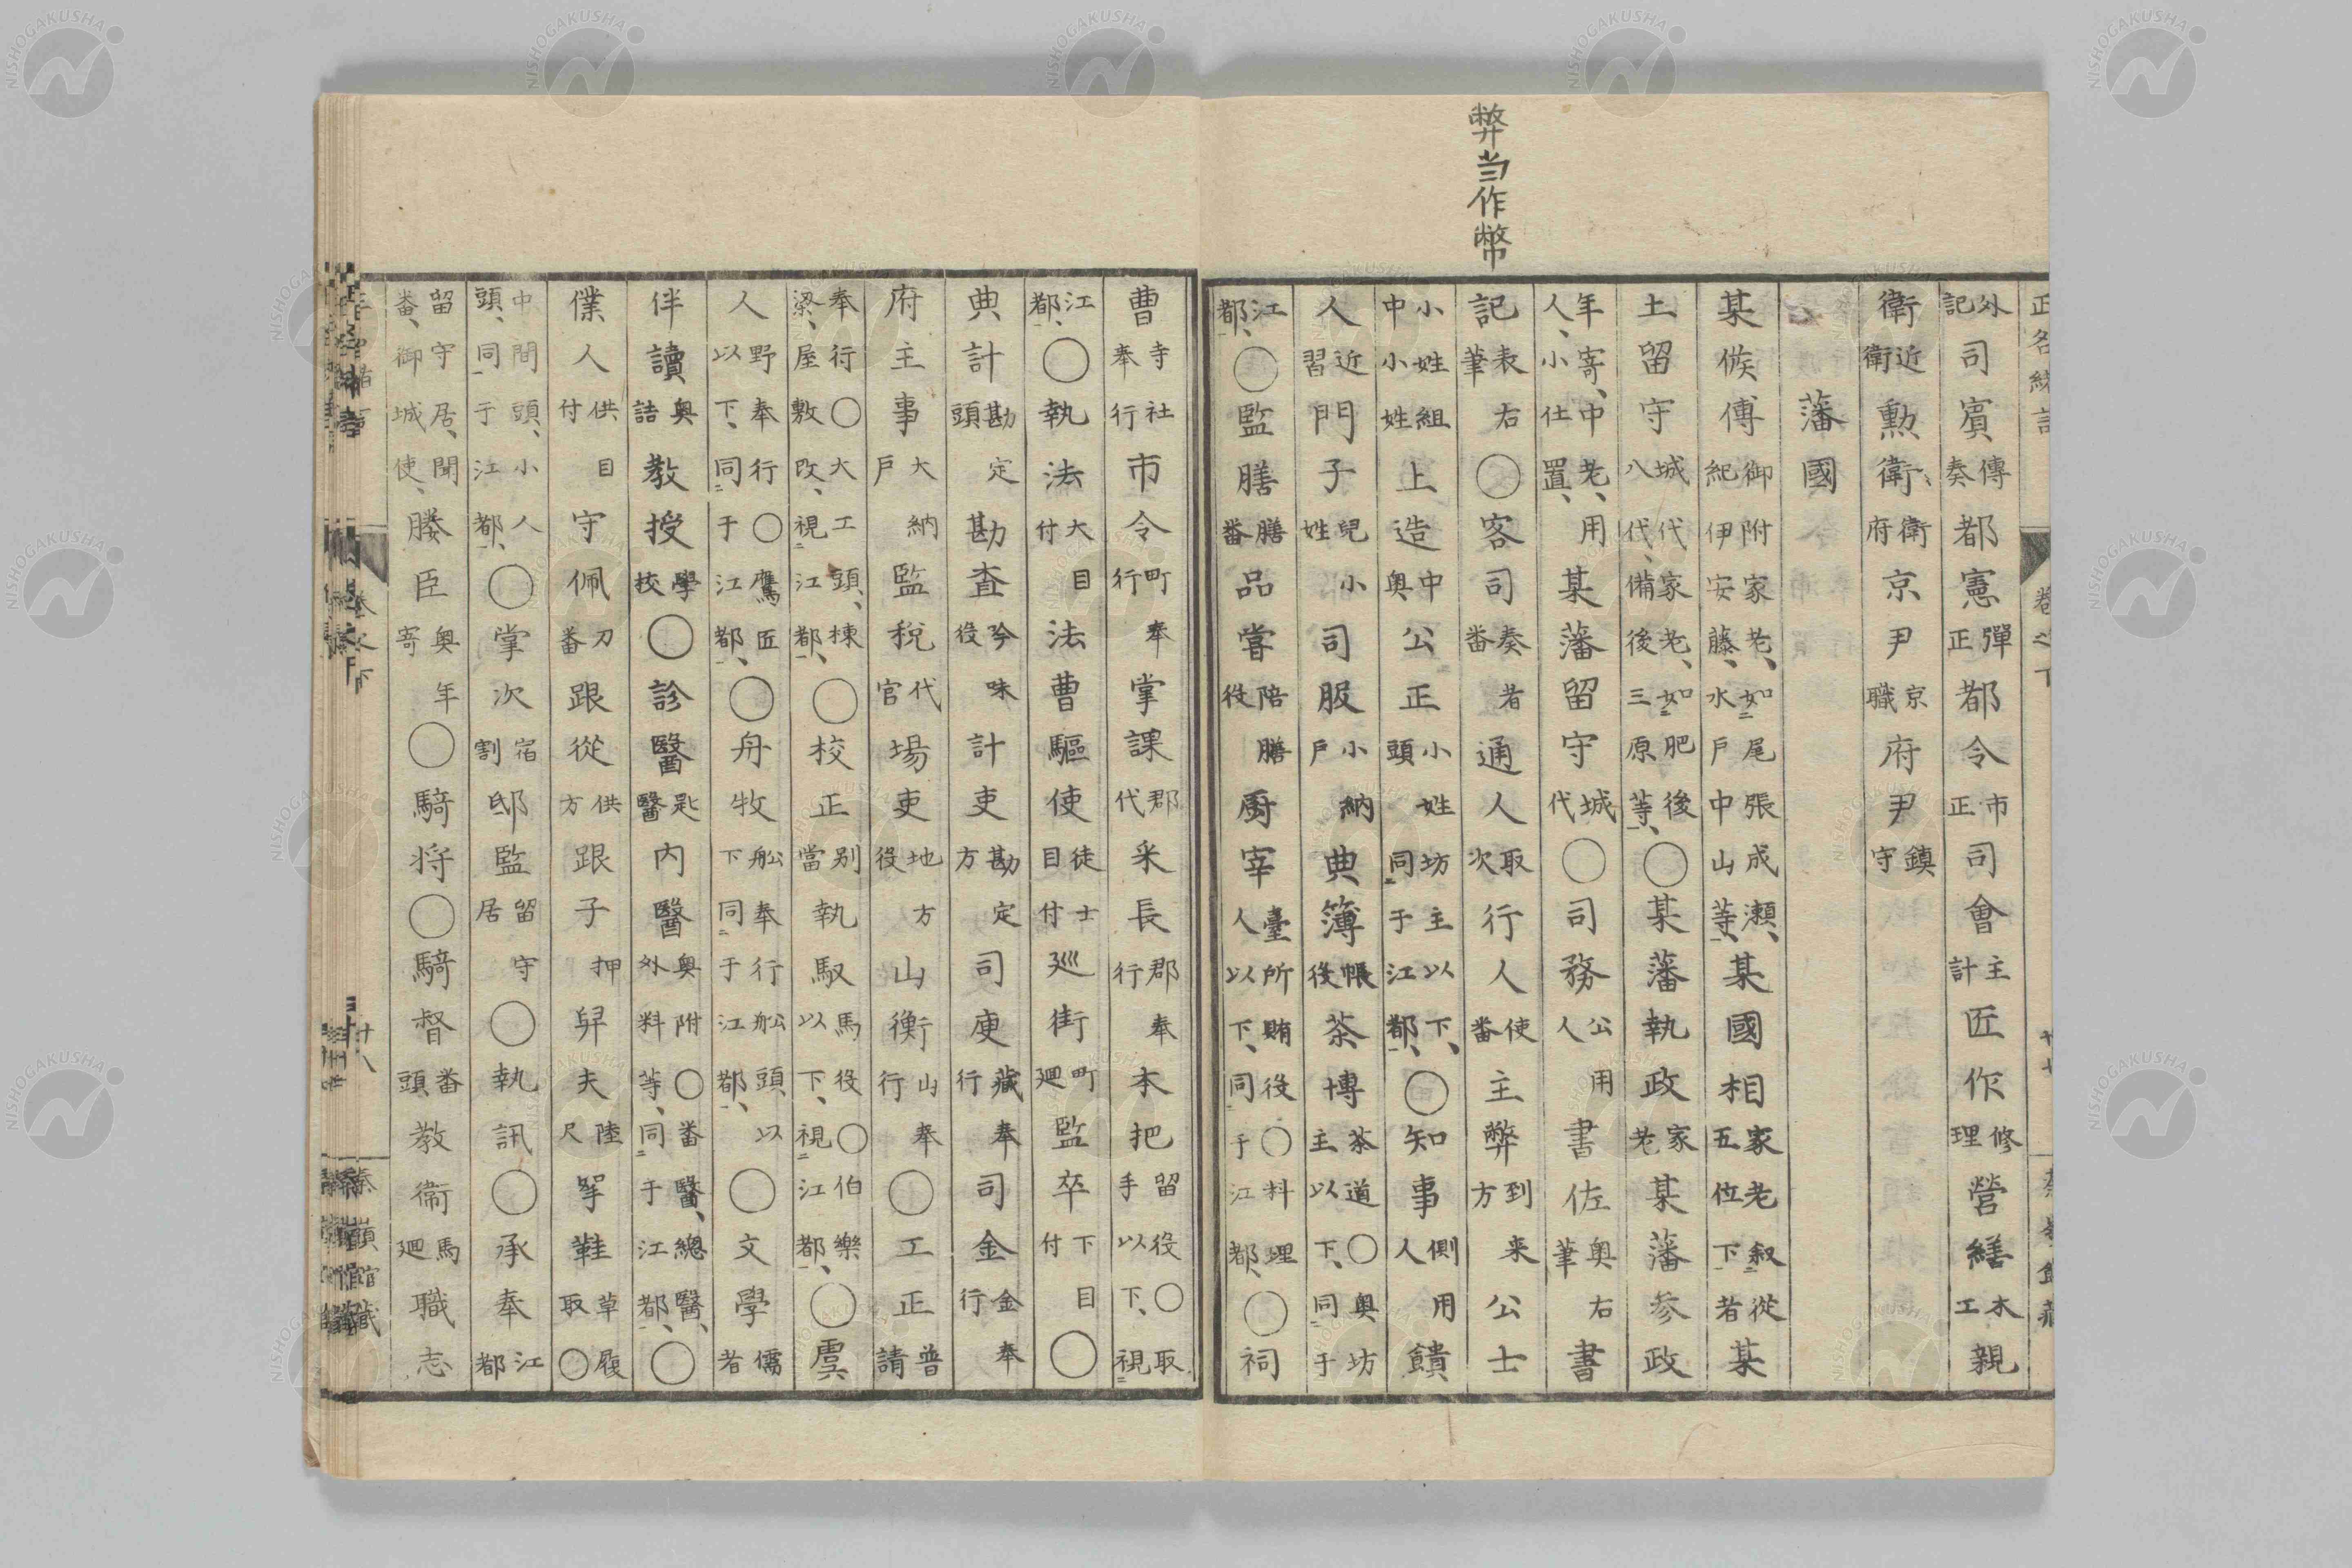 弊当作幣
外記司賓傳奏都憲彈正都令市正司會主計匠作修理營繕木工親
衛近衛勲衛衛府京尹京職府尹鎮守
藩國
某候傅御附家老、如二尾張成瀬、紀伊安藤、水戸中山等一、某國相家老叙二從五位下一者某
土留守城代家老、如二肥後八代、備後三原等一、○某藩執政家老某藩参政
年寄、中老、用人、小仕置、某藩留守城代○司務公用人書佐奥右筆書
記表右筆○客司奏者番通人取次行人使番主弊到来方公士
小姓組中小姓上造中奥公正小姓頭坊主以下、同二于江都一、○知事側用人饋
人近習門子兒小姓司服小納戸典簿帳役茶博茶道○奥坊主以下、同二于
江都一、○監膳膳番品嘗陪膳役厨宰臺所賄役○料理人以下、同二于江都一、○祠
曹寺社奉行市令町奉行掌課郡代采長郡奉行本把留役○取手以下、視二
江都一、○執法大目付法曹驅使徒士目付巡街町廻監卒下目付○
典計勘定頭勘査吟味役計吏勘定方司庾藏奉行司金金奉行
府主事大納戸監税代官場吏地方役山衡山奉行○工正普請
奉行○大工頭、棟梁、屋敷改、視二江都一、○校正別當執馭馬役○伯樂以下、視二江都一、○虞
人野奉行○鷹匠以下、同二于江都一、○舟牧舩奉行舩頭以下同二于江都一、○文學儒者
伴讀奥詰教授學校○診醫匙醫内醫奥附○番醫、總醫、外料等、同二于江都一、○
僕人供目付守佩刀番跟從供方跟子押舁夫陸尺挈鞋草履取○
中間頭、小人頭、同二于江都一、○掌次宿割邸監留守居○執訊○承奉江都
留守居、聞番、御城使、媵臣奥年寄○騎将○騎督番頭教衛馬廻職志
廿八